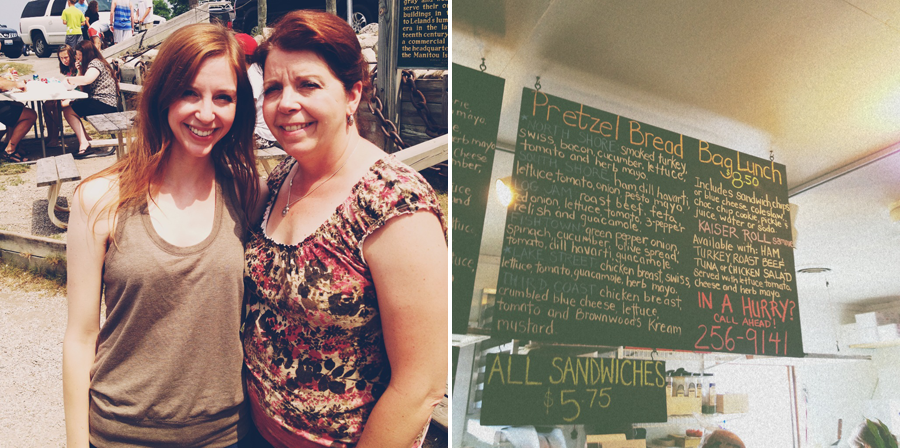 serve their o
buildings in
to Leland's lum
era in the la
teenth century
a commercial
the headquarte
the Manitou Is
mayo.
herb mayo
cheese
Pretzel Bread
NORTH SHORE smoked turkey
swiss, bacon, cucumber, lettuce,
tomato and herb mayo.
SOUTH SHORE ham, dill havarti,
lettuce, tomato, onion, pesto mayo
LOG JAM roast beef, feta,
red onion, lettuce, tomato, 3-pepper
relish and guacamole.
green pepper, onion,
spinach, cucumber, olive spread,
tomato, dill havarti, guacamole
LAKE STREET chicken breast, swiss,
lettuce, tomato, guacamole, herb mayo.
THIRD COAST chicken breast,
crumbled blue cheese, lettuce,
tomato and Brownwoods Kream
mustard
Bag Lunch
8.50
Includes sandwich, chips
or blue cheese coleslaw,
choc. chip cookie, pickle &
juice, water or soda.
KAISER ROLL
Available with: HAM
TURKEY, ROAST BEEF
TUNA, or CHICKEN SALAD
served with lettuce, tomato,
cheese and herb mayo
IN A HURRY?
CALL AHEAD!
256-9141
ALL SANDWICHES
$5.75